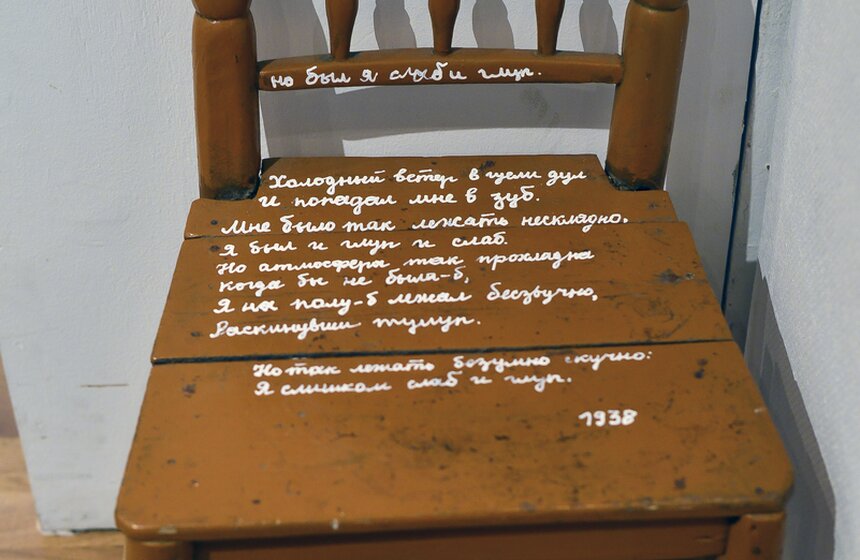 но был я слаб и глуп.
Холодный ветер в щели дул
и попадал мне в зуб.
Мне было так лежать нескладно.
Я был и глуп и слаб.
Но атмосфера так прохладна
когда бы не была-б,
Я на полу-б лежал беззвучно,
Раскинувши тулуп.
Но так лежать безумно скучно:
Я слишком слаб и глуп.
1938